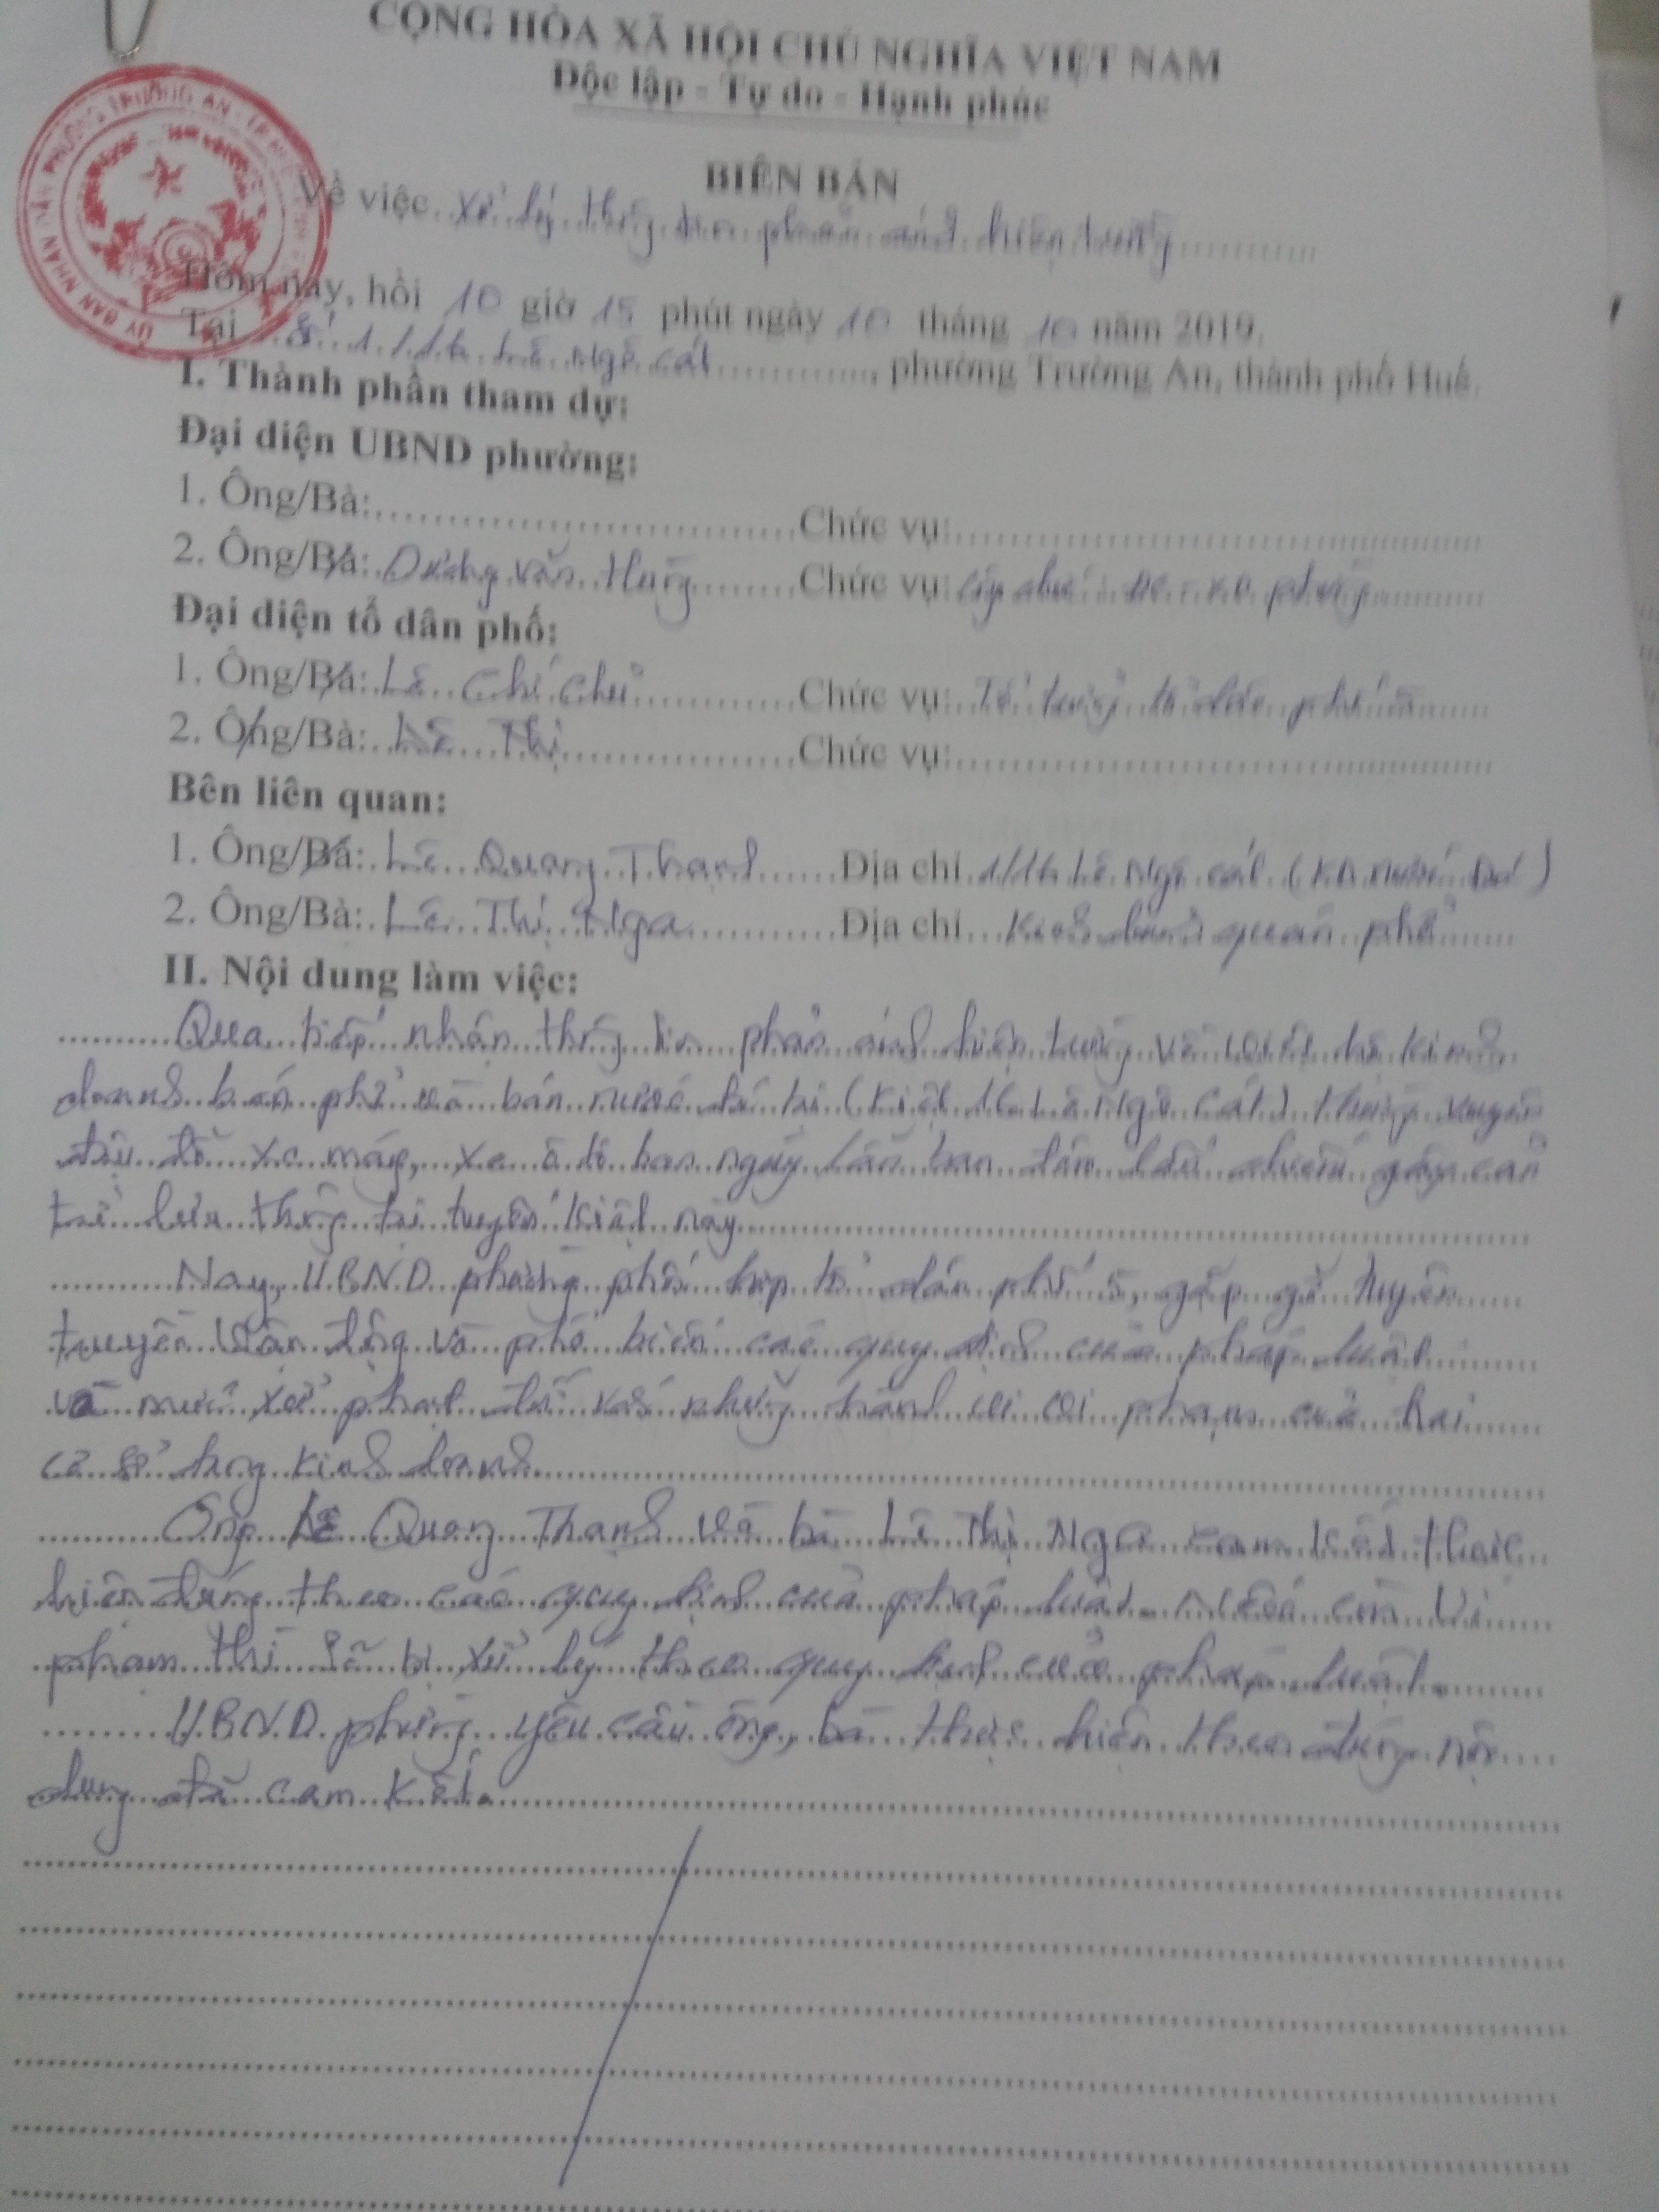 CỘNG HÒA XÃ HỘI CHỦ NGHĨA VIỆT NAM
Độc lập - Tự do - Hạnh phúc
BIÊN BẢN
Về việc xử lý thông tin phản ánh hiện trường
Hôm nay, hồi 10 giờ 15 phút ngày 10 tháng 10 năm 2019.
Tại Số 1/16 Lê Ngô Cát, phường Trường An, thành phố Huế.
I. Thành phần tham dự:
Đại diện UBND phường:
1. Ông/Bà: Chức vụ:
2. Ông/Bà: Dương Văn Hùng Chức vụ: phường
Đại diện tổ dân phố:
1. Ông/Bà: Lê Chí Chữ Chức vụ: Tổ trưởng tổ dân phố 5
2. Ông/Bà: Lê Thị Chức vụ:
Bên liên quan:
1. Ông/Bà: Lê Quang Thạnh Địa chỉ 1/16 Lê Ngô Cát (KD nước)
2. Ông/Bà: Lê Thị Nga Địa chỉ quán phở
II. Nội dung làm việc:
Qua tiếp nhận thông tin phản ánh hiện trường về việc hộ kinh
doanh bán phở và bán nước tại (Kiệt 16 Lê Ngô Cát) thường xuyên
đậu đỗ xe máy, xe ô tô ban ngày lẫn ban đêm gây cản
trở lưu thông tại tuyến kiệt này
Nay, UBND phường phối hợp tổ dân phố 5, gặp gỡ tuyên
truyền vận động và phổ biến các quy định của pháp luật
và mức xử phạt đối với những hành vi vi phạm của hai
cơ sở trong kinh doanh.
Ông Lê Quang Thạnh và bà Lê Thị Nga cam kết thực
hiện đúng theo các quy định của pháp luật. Nếu còn vi
phạm thì sẽ bị xử lý theo quy định của pháp luật.
UBND phường yêu cầu ông, bà thực hiện theo đúng nội
dung đã cam kết.